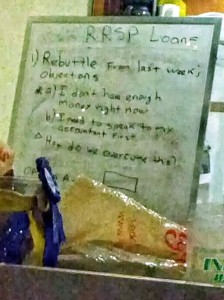 RRSP Loans
1) Rebuttle From last week's
objections
a) I don't have enough
money right now
b) I need to speak to my
accountant first
How do we overcome this?